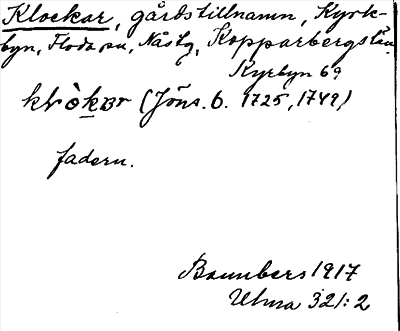 Klockar, gårdstillnamn, Kyrk-
byn, Floda sn, Nåsbg, Kopparbergs län.
Kyrbyn 69
klòkar (Jöns. b. 1725, 1749)
fadern.
1917
321:2